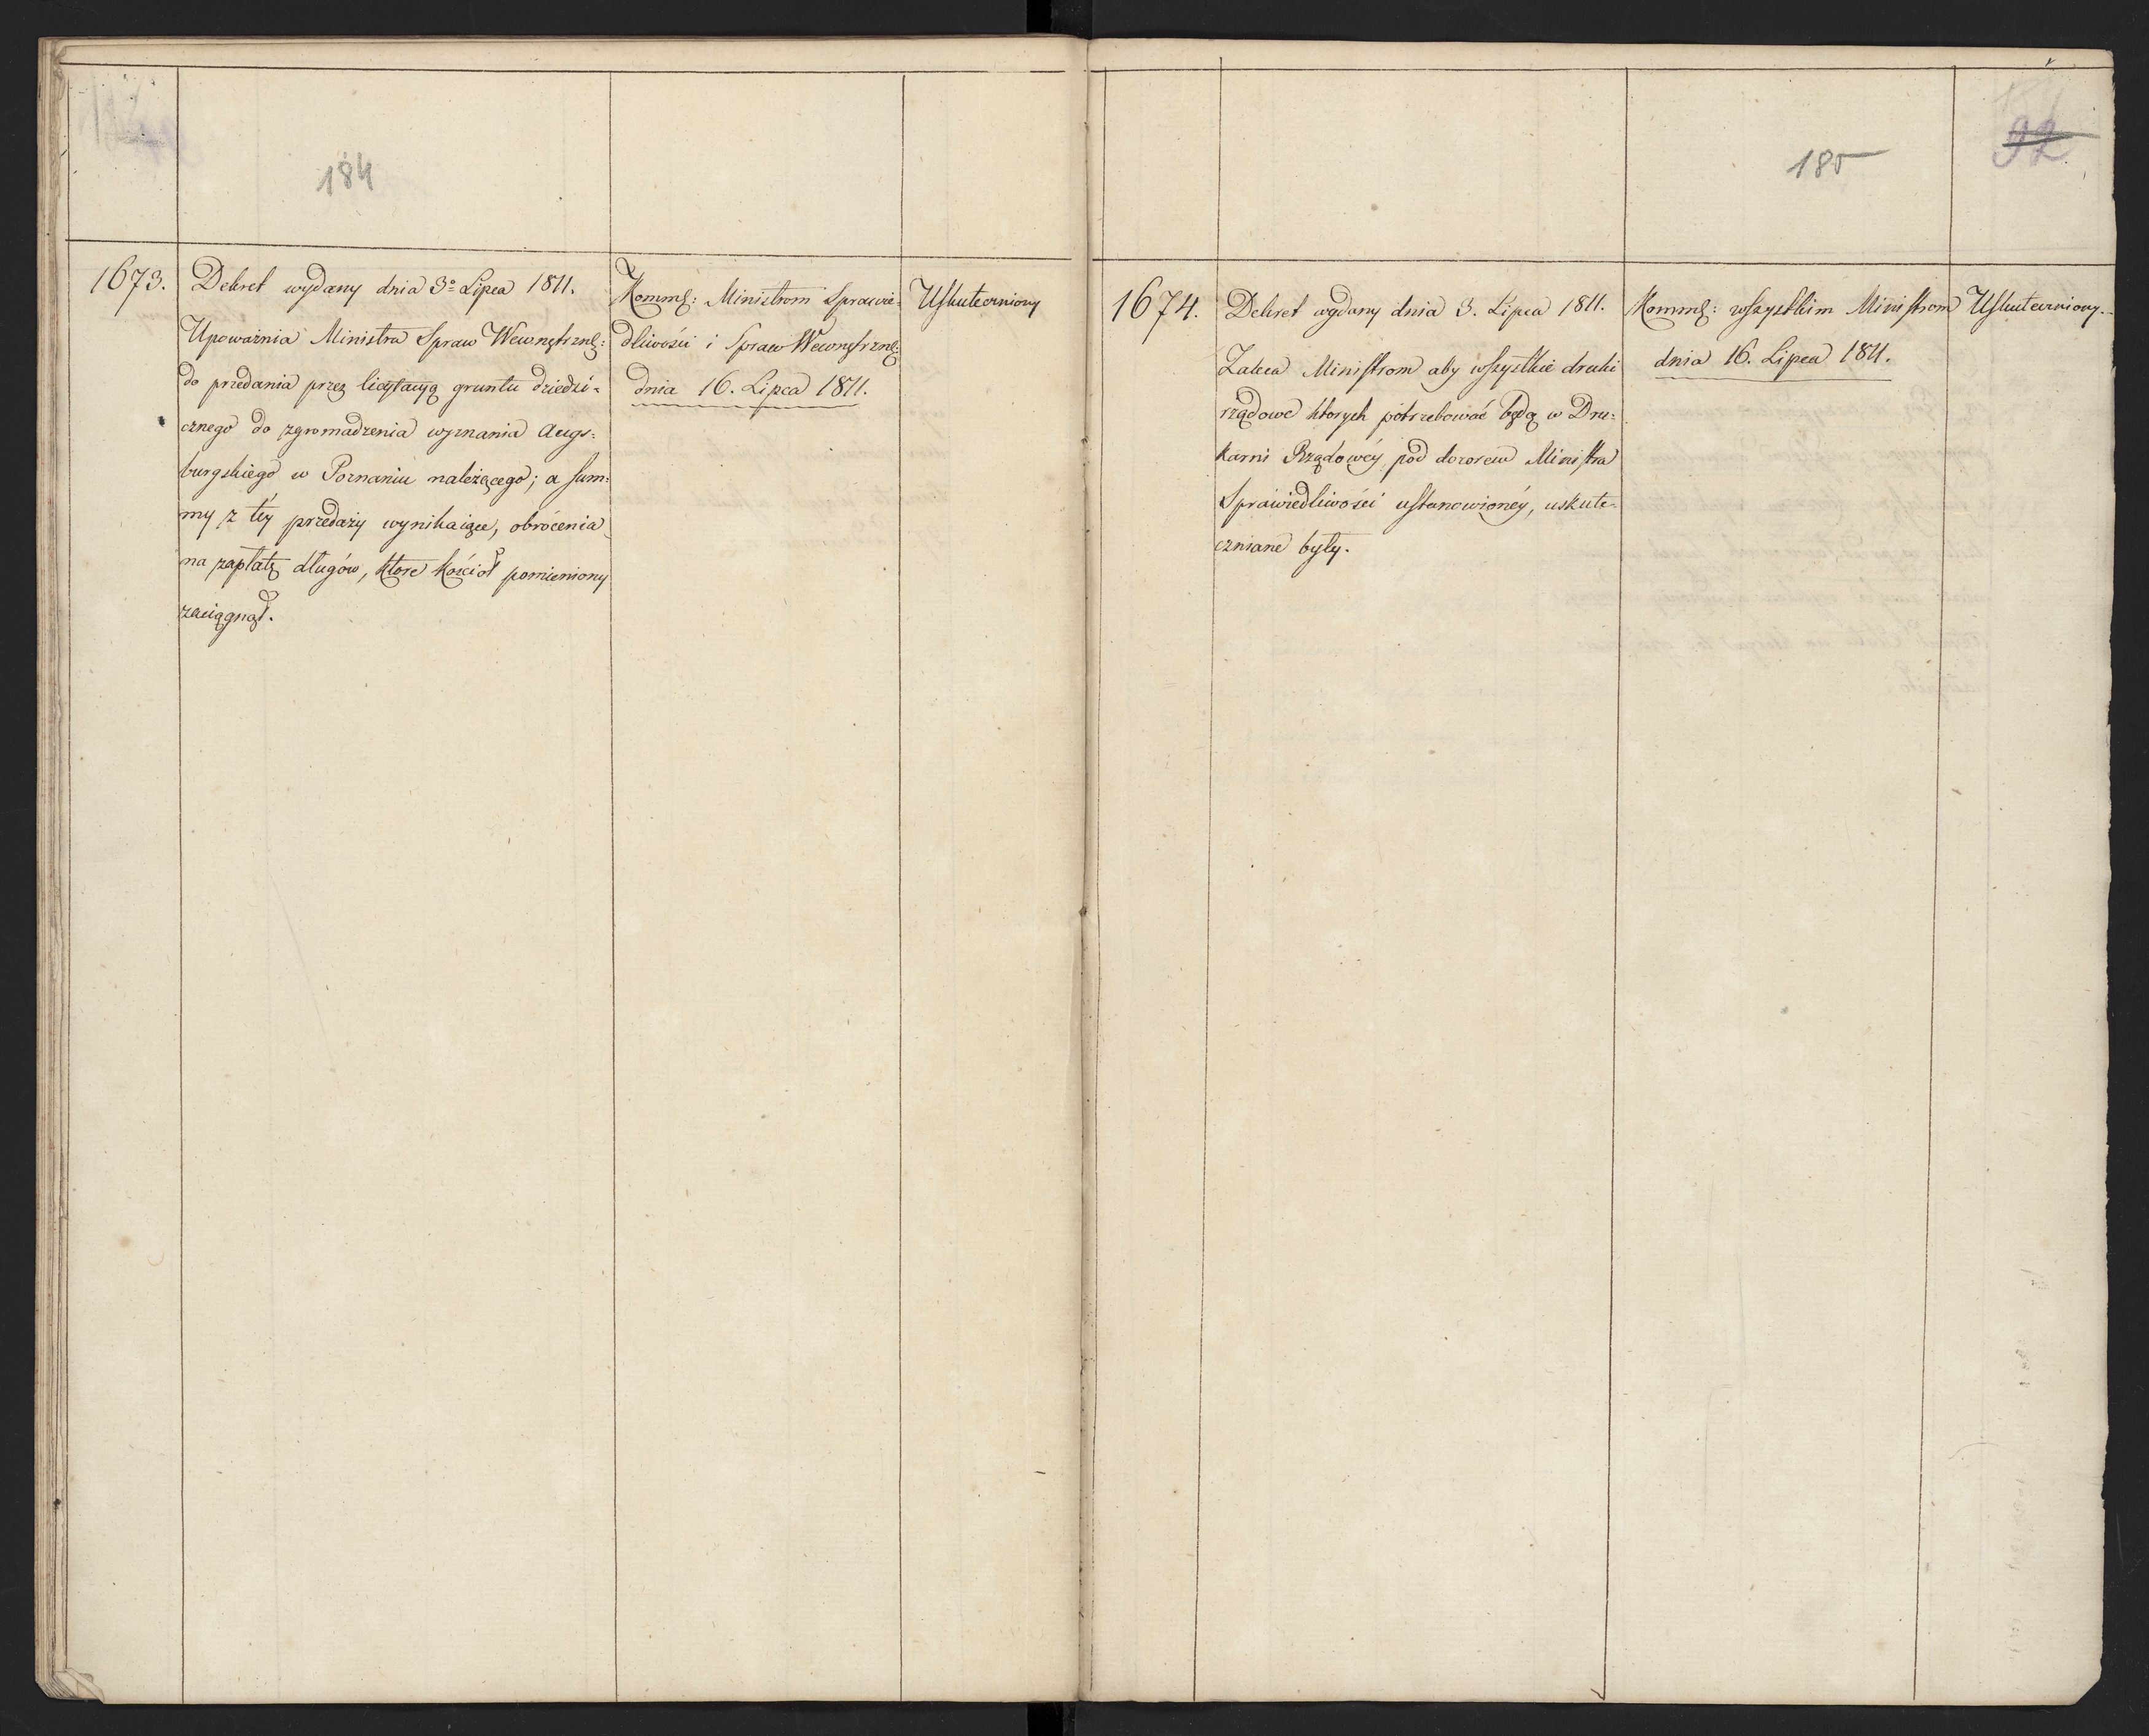 184
1673.
Dekret wydany dnia 3º Lipca 1811.
Upoważnia Ministra Spraw Wewnętrzn:
do przedania przez licytacyą gruntu dziedzi=
cznego do zgromadzenia wyznania Augs=
burgskiego w Poznaniu należącego; a sum=
my z téy przedaży wynikaiące, obrócenia
na zapłatę długów, które kościoł pomieniony
zaciągnął.
Komm: Ministrom Sprawie=
dliwości i Spraw Wewnętrzn:
dnia 16. Lipca 1811.
Uskuteczniony
185
92
1674.
Dekret wydany dnia 3. Lipca 1811.
Zaleca Ministrom aby wszystkie druki
rządowe których potrzebować będą w Dru=
karni Rządowéy pod dozorem Ministra
Sprawiedliwości ustanowionéy, uskute=
czniane były.
Komm: wszystkim Ministrom
dnia 16. Lipca 1811.
Uskuteczniony.